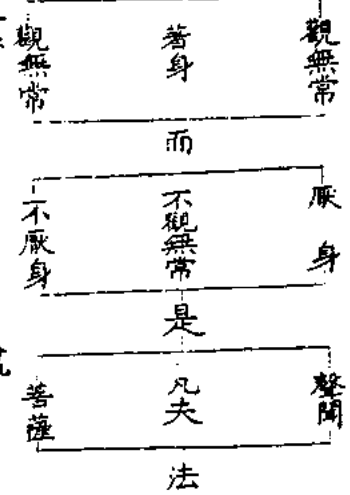 觀無常
著身
觀無常
而
厭身
不觀無常
不厭身
是
聲聞
凡夫
菩薩
法